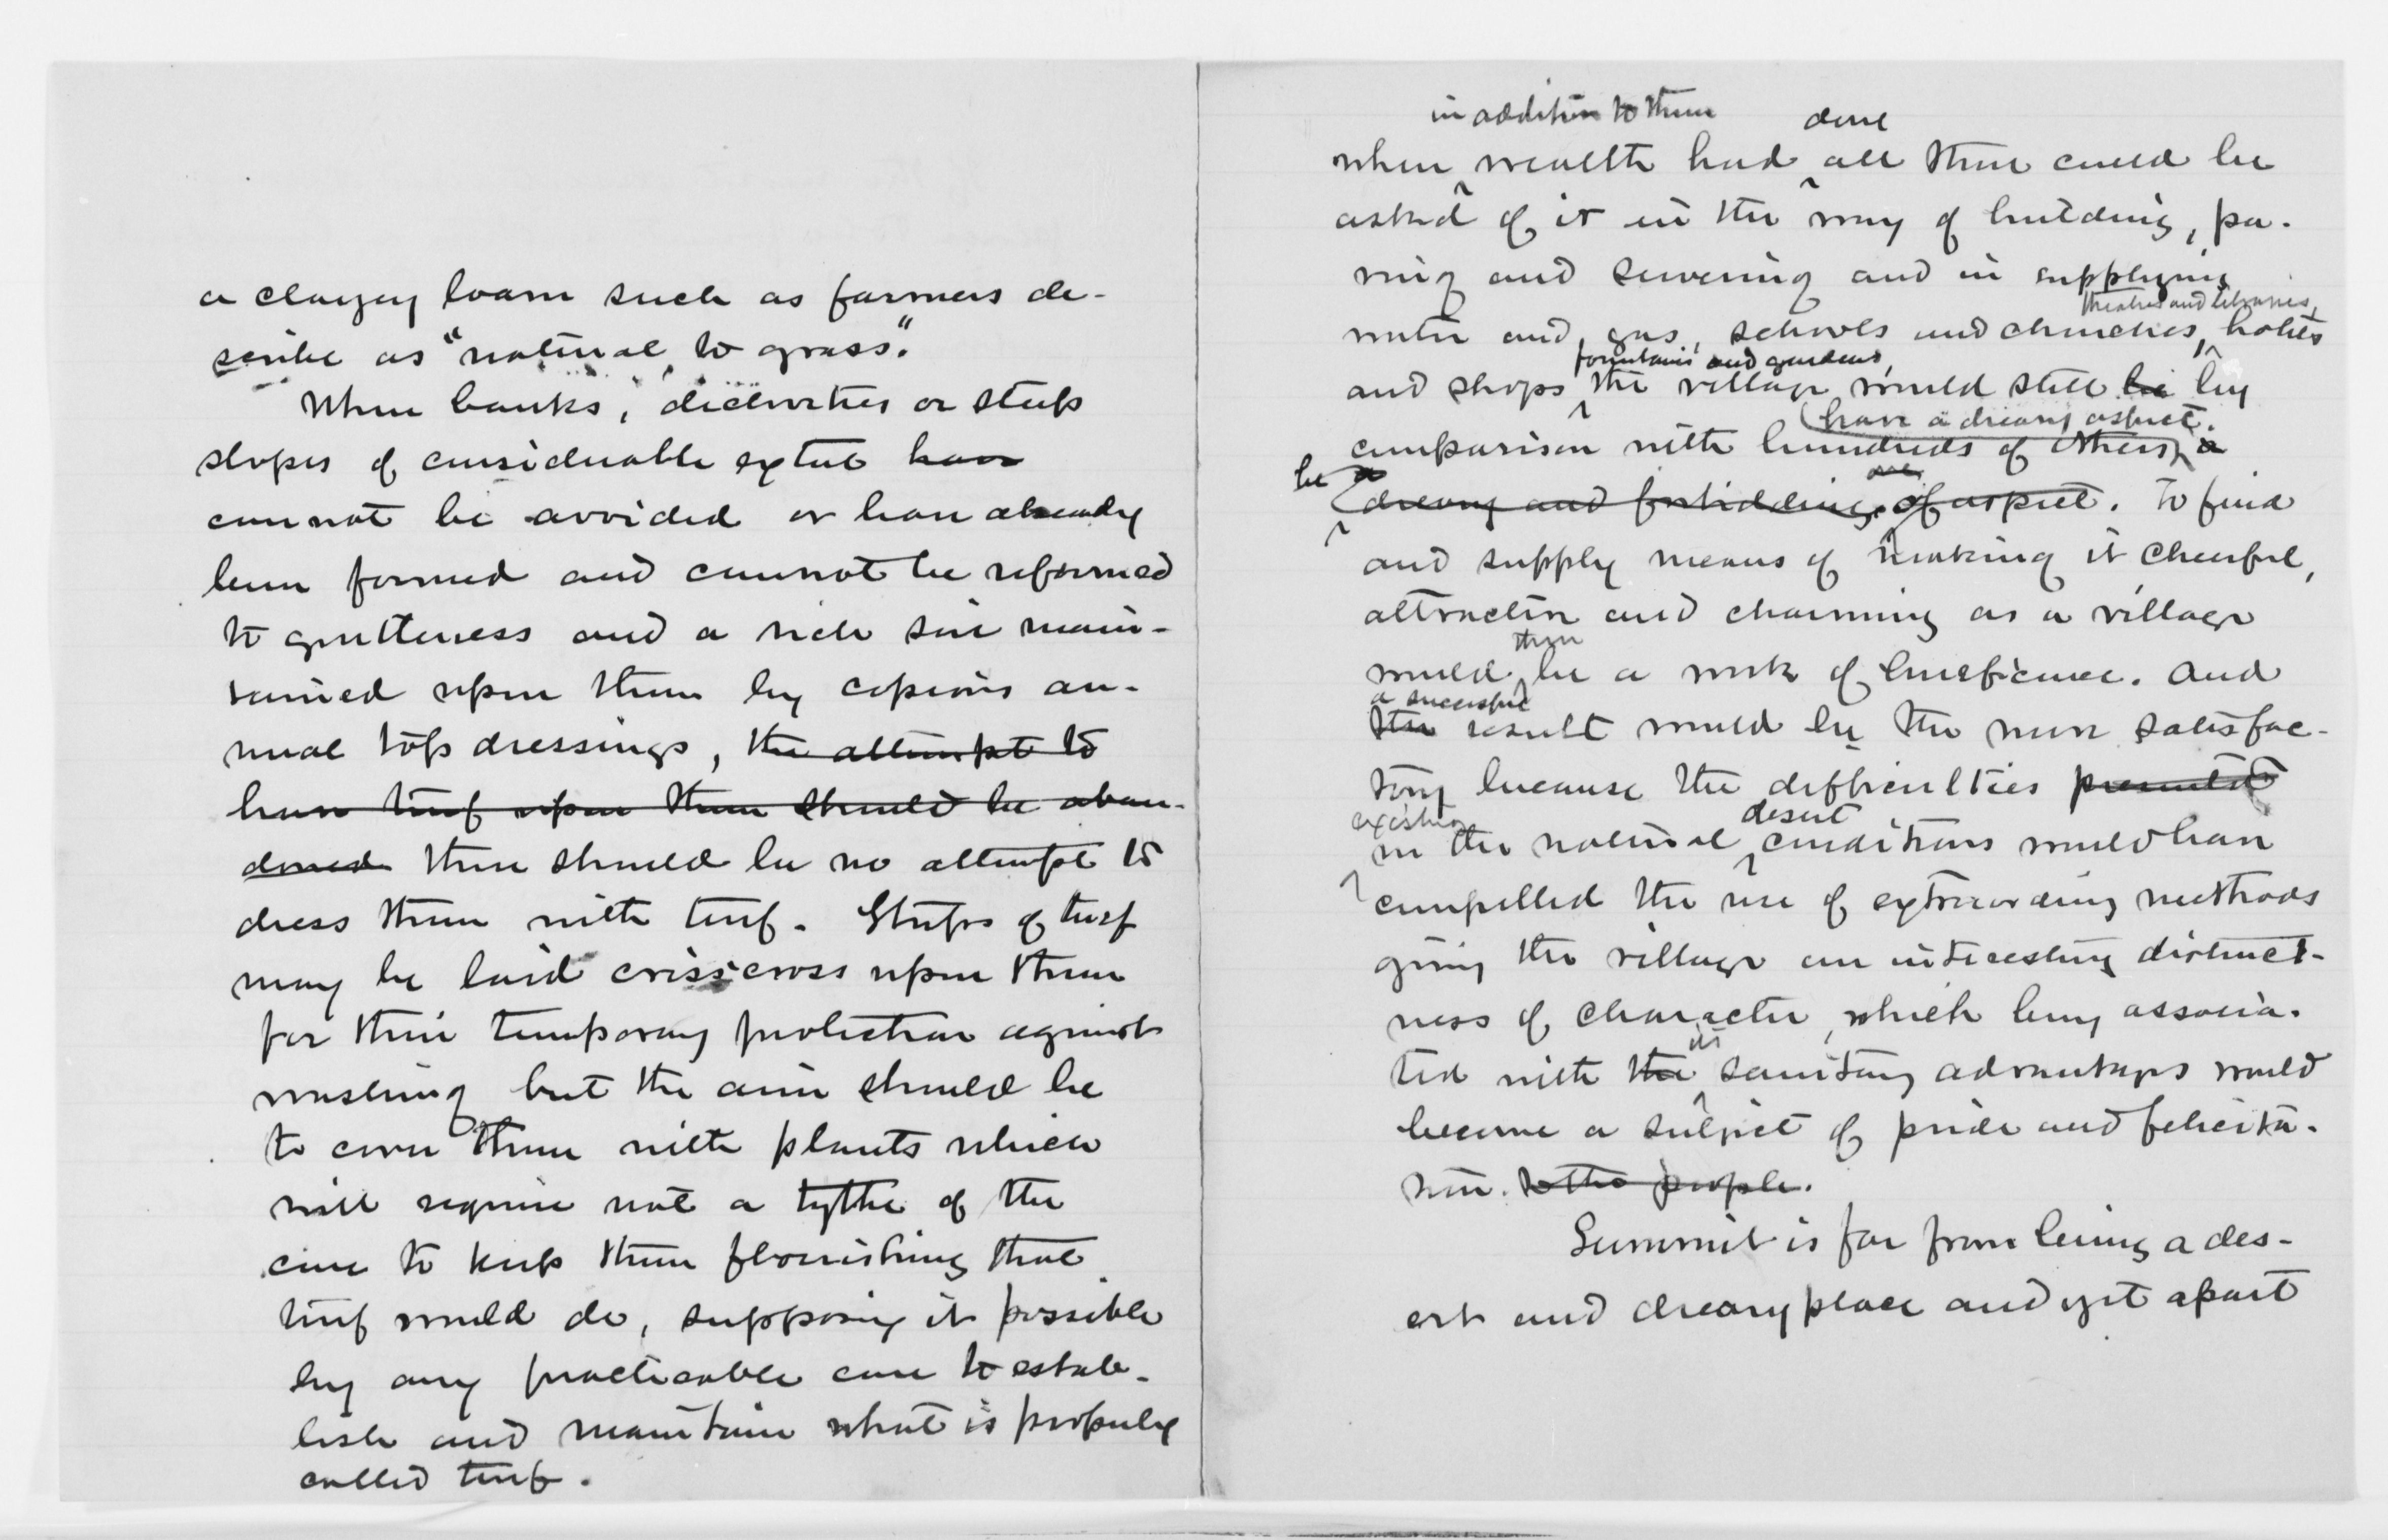 a clayey loam such as farmers de-
scribe as "natural to grass."
When banks, declivities or steep
slopes of considerable extent have
cannot be avoided or have already
been formed and cannot be reformed
to gentleness and a rich soil main-
tained upon them by copious an-
nual top dressings, the attempt to
have turf upon them should be aban-
doned there should be no attempt to
dress them with turf. Strips of turf
may be laid crisscross upon them
for their temporary protection against
washing but the aim should be
to cover them with plants which
will require not a tythe of the
care to keep them flourishing that
turf would do, supposing it possible
by any practicable care to estab-
lish and maintain what is properly
called turf.
in addition to them done
when wealth had all that could be
asked of it in the way of building, pa-
ving and sewering and in supplying
theatres and libraries,
water and gas, schools and churches, hotels
fountains and gardens,
and shops the village would still be by
have a dreary aspect.
comparison with hundreds of others, a
be
dreary and forbidding of aspect. To find
and supply means of making it cheerful,
attractive and charming as a village
then
would be a work of beneficence. And
a successful
the result would be the more satisfac-
tory because the difficulties presented
existing desert
in the natural conditions would have
compelled the use of extraordinary methods
giving the village an interesting distinct-
ness of character, which being associa-
its
ted with the sanitary advantages would
become a subject of pride and felicita-
tion. to the people.
Summit is far from being a des-
ert and dreary place and yet apart